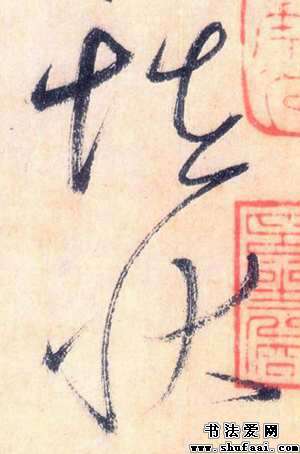 怪状
书法爱网
www.shufaai.com